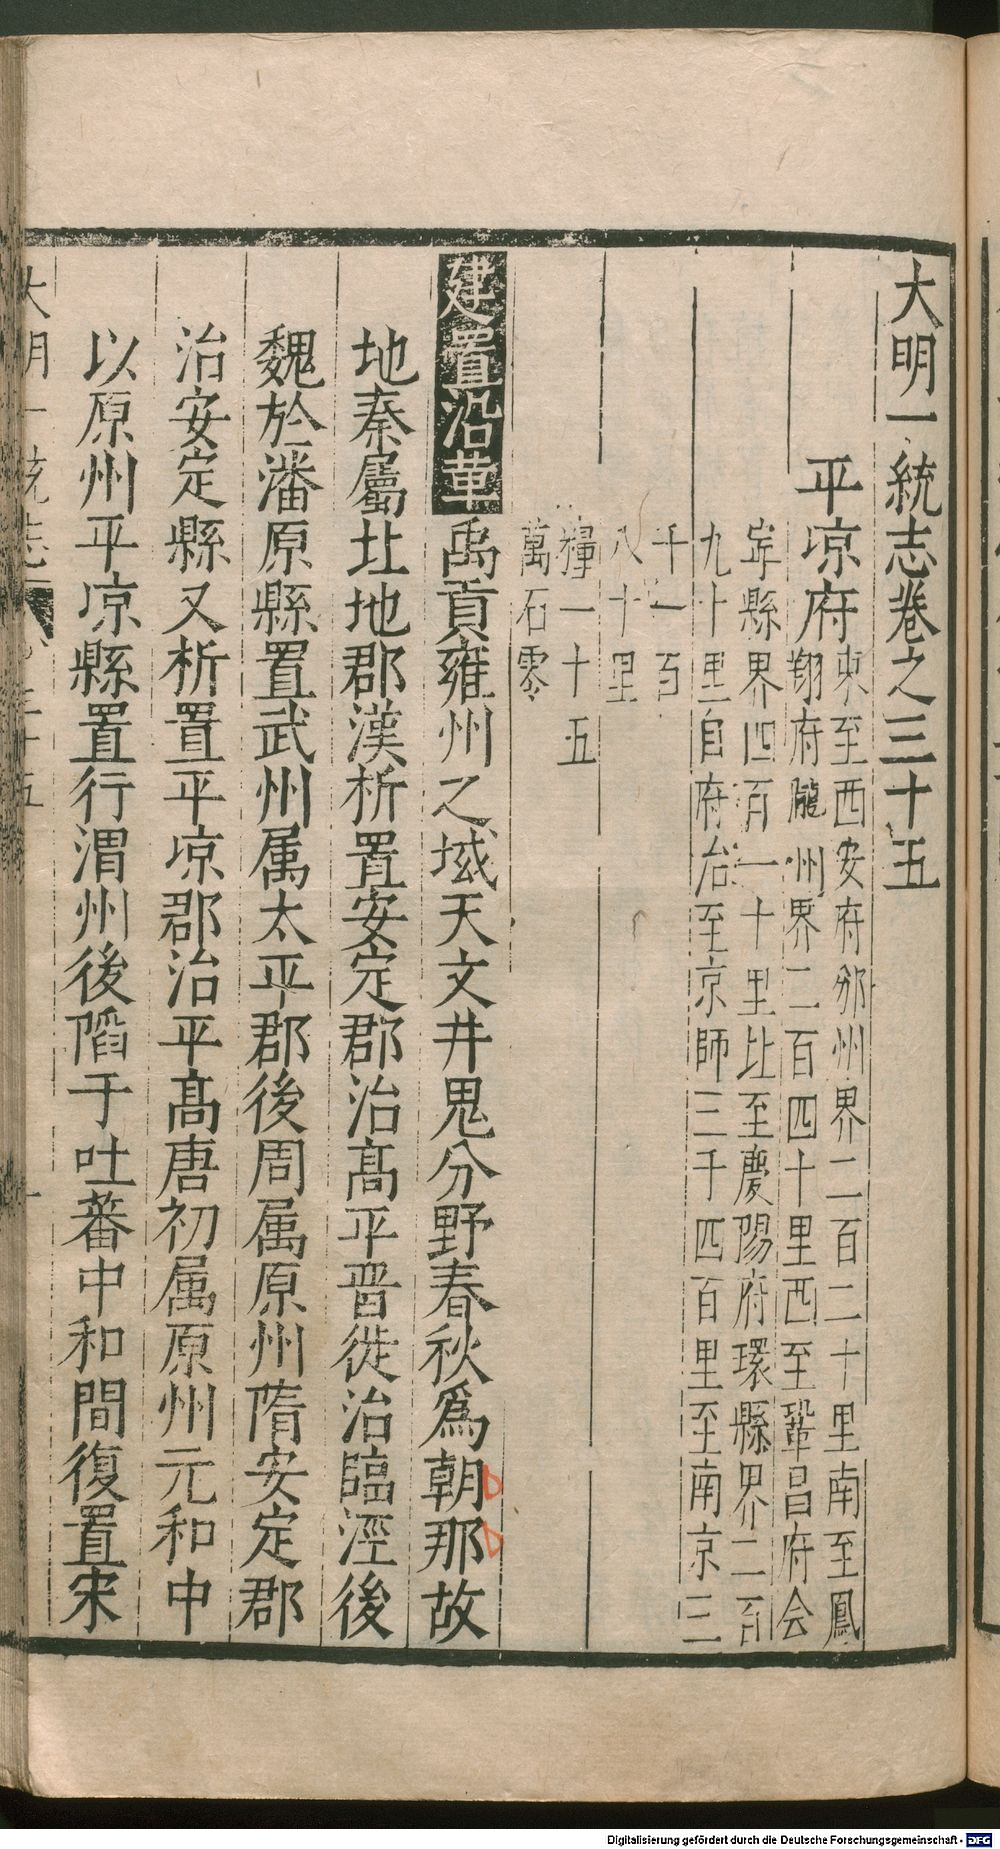 大明一統志卷之三十五
平凉府
東至西安府邠州界二百二十里南至鳳
翔府隴州界二百四十里西至鞏昌府会
寧縣界四百一十里北至慶陽府環縣界二百
九十里自府治至京師三千四百里至南京三
千一百
八十里
糧一十五
萬石零
建置沿革 禹貢雍州之域天文井鬼分野春秋爲朝那故
地秦屬北地郡漢析置安定郡治高平晋徙治臨涇後
魏於潘原縣置武州属太平郡後周属原州隋安定郡
治安定縣又析置平凉郡治平髙唐初属原州元和中
以原州平凉縣置行渭州後䧟于吐蕃中和間復置宋
大明一統志 三十五 一
Digitalisierung gefördert durch die Deutsche Forschungsgemeinschaft - DFG